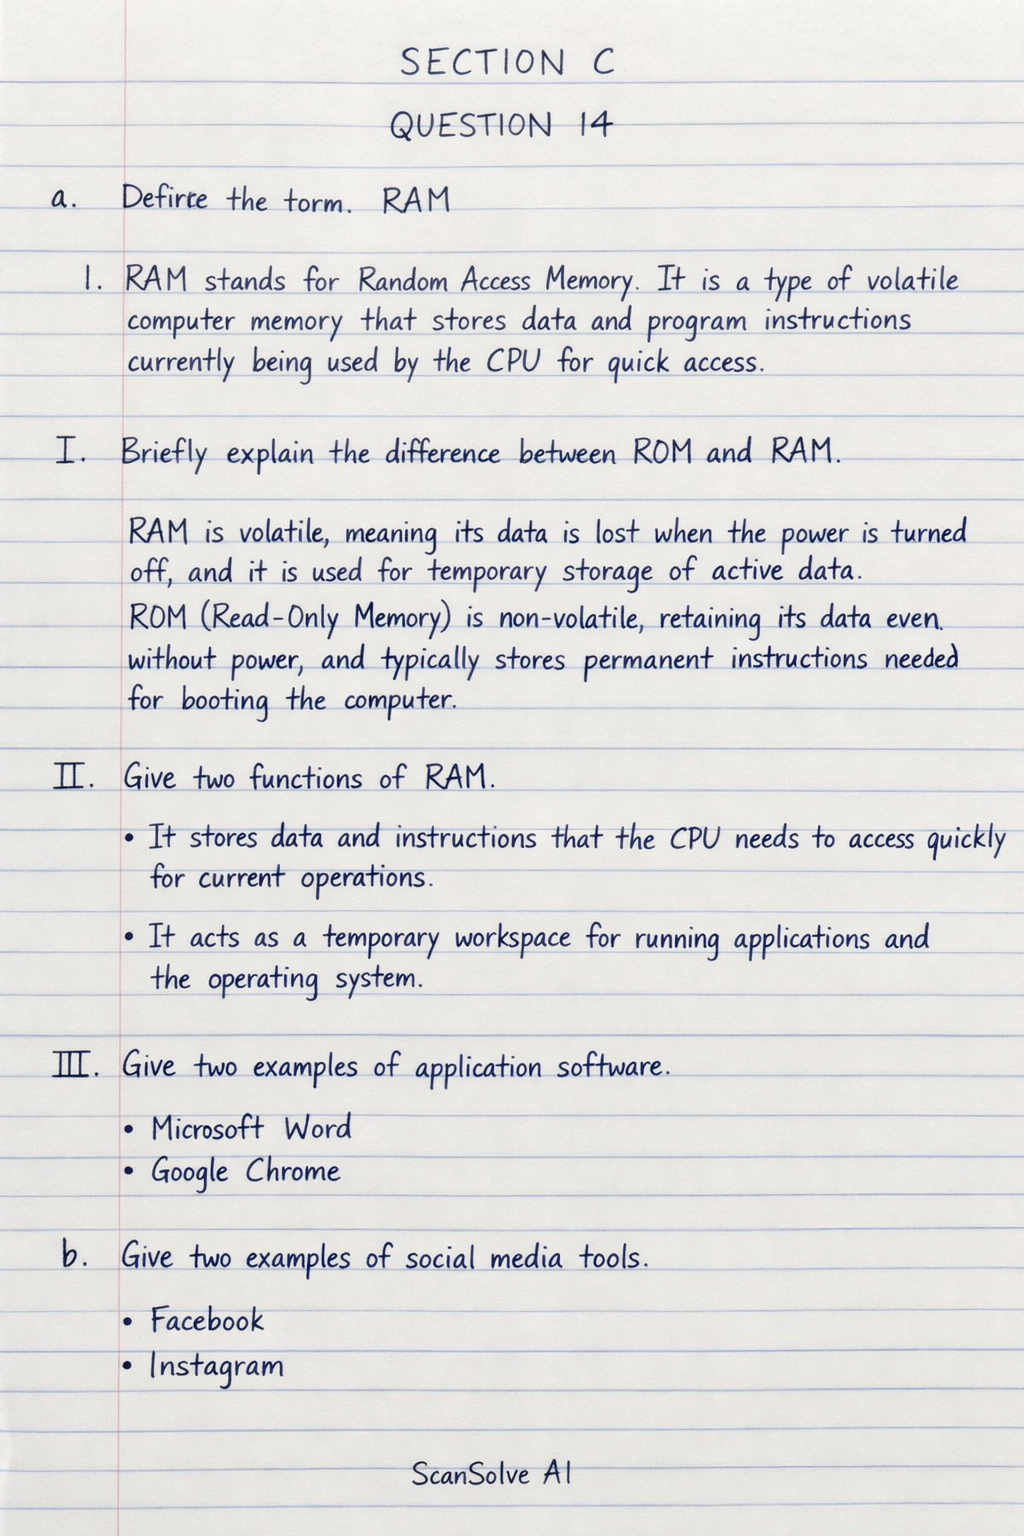 SECTION C
QUESTION 14
a. Defirte the torm. RAM
1. RAM stands for Random Access Memory. It is a type of volatile
computer memory that stores data and program instructions
currently being used by the CPU for quick access.
I. Briefly explain the difference between ROM and RAM.
RAM is volatile, meaning its data is lost when the power is turned
off, and it is used for temporary storage of active data.
ROM (Read-Only Memory) is non-volatile, retaining its data even.
without power, and typically stores permanent instructions needed
for booting the computer.
II. Give two functions of RAM.
• It stores data and instructions that the CPU needs to access quickly
for current operations.
• It acts as a temporary workspace for running applications and
the operating system.
III. Give two examples of application software.
• Microsoft Word
• Google Chrome
b. Give two examples of social media tools.
• Facebook
• Instagram
ScanSolve AI